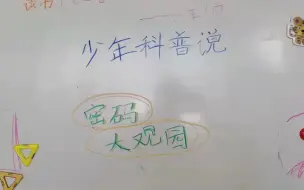 少年科普说
密码
大观园